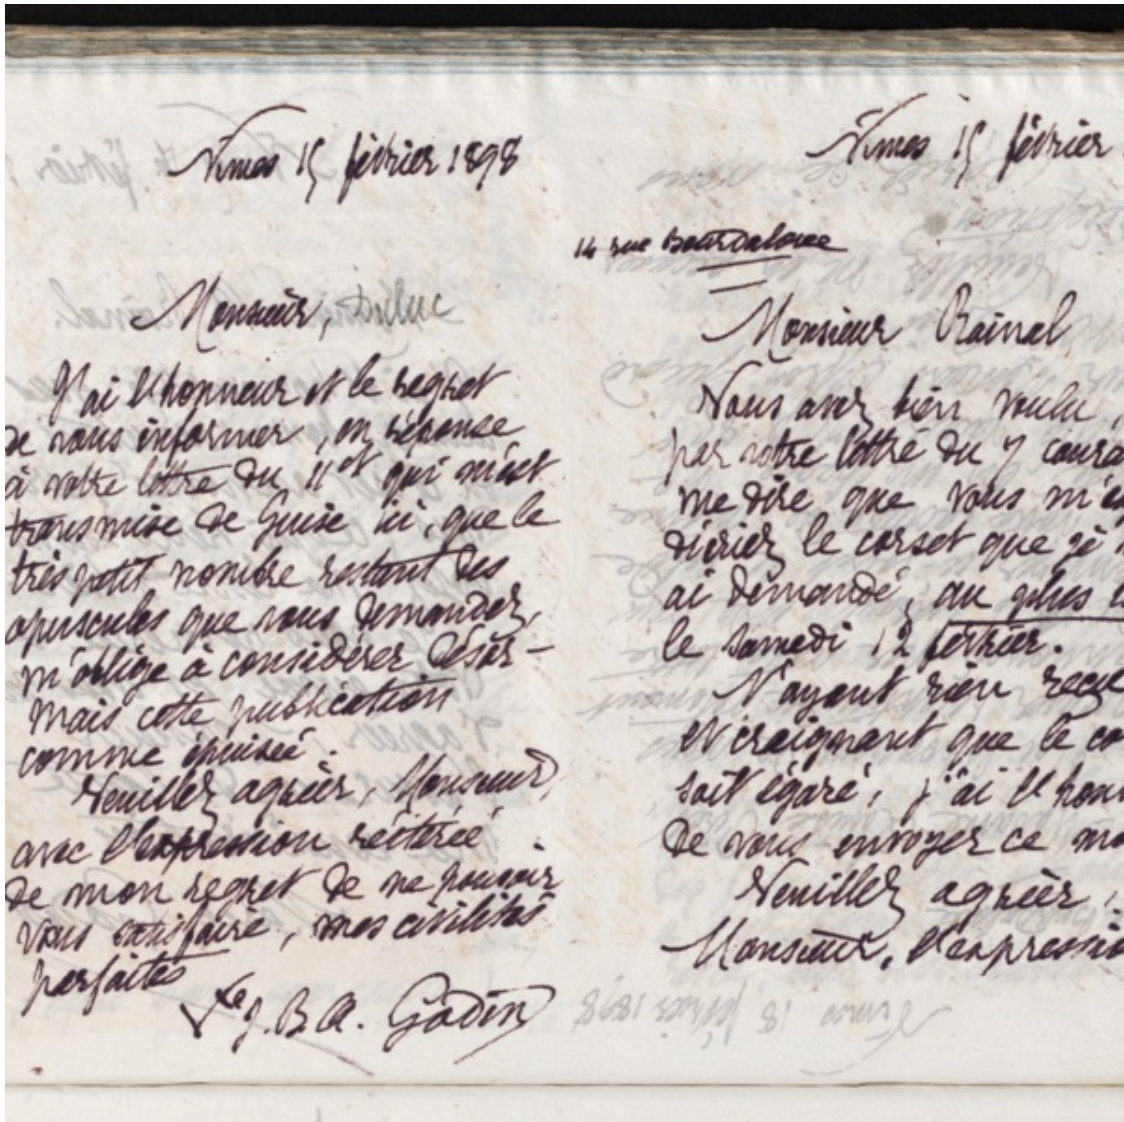 Nimes 15 février 1898
Monsieur, Duluc
J'ai l'honneur et le regret
de vous informer, en réponse
à votre lettre du 11 et qui m'est
transmise de Guise ici, que le
très petit nombre restant des
opuscules que vous demandez,
m'oblige à considérer désor-
mais cette publication
comme épuisée.
Veuillez agréer, Monsieur,
avec l'expression réitérée
de mon regret de ne pouvoir
vous satisfaire, mes civilités
parfaites
Ve J. B. A. Godin
Nimes 15 février
14 rue Bourdaloue
Monsieur Rainal
Vous avez bien voulu,
par votre lettre du 7 coura
me dire que vous m'ex
diriez le corset que je
ai demandé, au plus
le samedi 12 février.
N'ayant rien reçu
et craignant que le co
soit égaré, j'ai l'hon
de vous envoyer ce mo
Veuillez agréer,
Monsieur, l'expressio
Nimes 18 février 1898